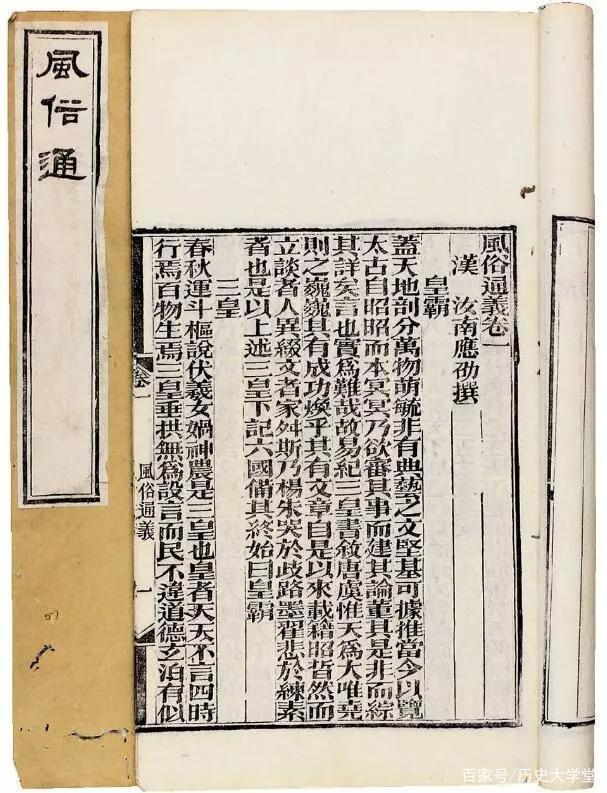 風俗通
風俗通義卷一
漢 汝南應劭撰
皇霸
蓋天地剖分萬物萌毓非有典藝之文堅基可據推當今以覽
太古自昭昭而本冥冥乃欲審其事而建其論董其是非而綜
其詳矣言也實爲難哉故易紀三皇書敘唐虞惟天爲大唯堯
則之巍巍其有成功煥乎其有文章自是以來載籍昭晢然而
立談者人異綴文者家舛斯乃楊朱哭於歧路墨翟悲於練素
者也是以上述三皇下記六國備其終始曰皇霸
三皇
春秋運斗樞說伏羲女媧神農是三皇也皇者天天不言四時
行焉百物生焉三皇垂拱無爲設言而民不違道德玄泊有似
卷一
風俗通義
一
百家号/历史大学堂